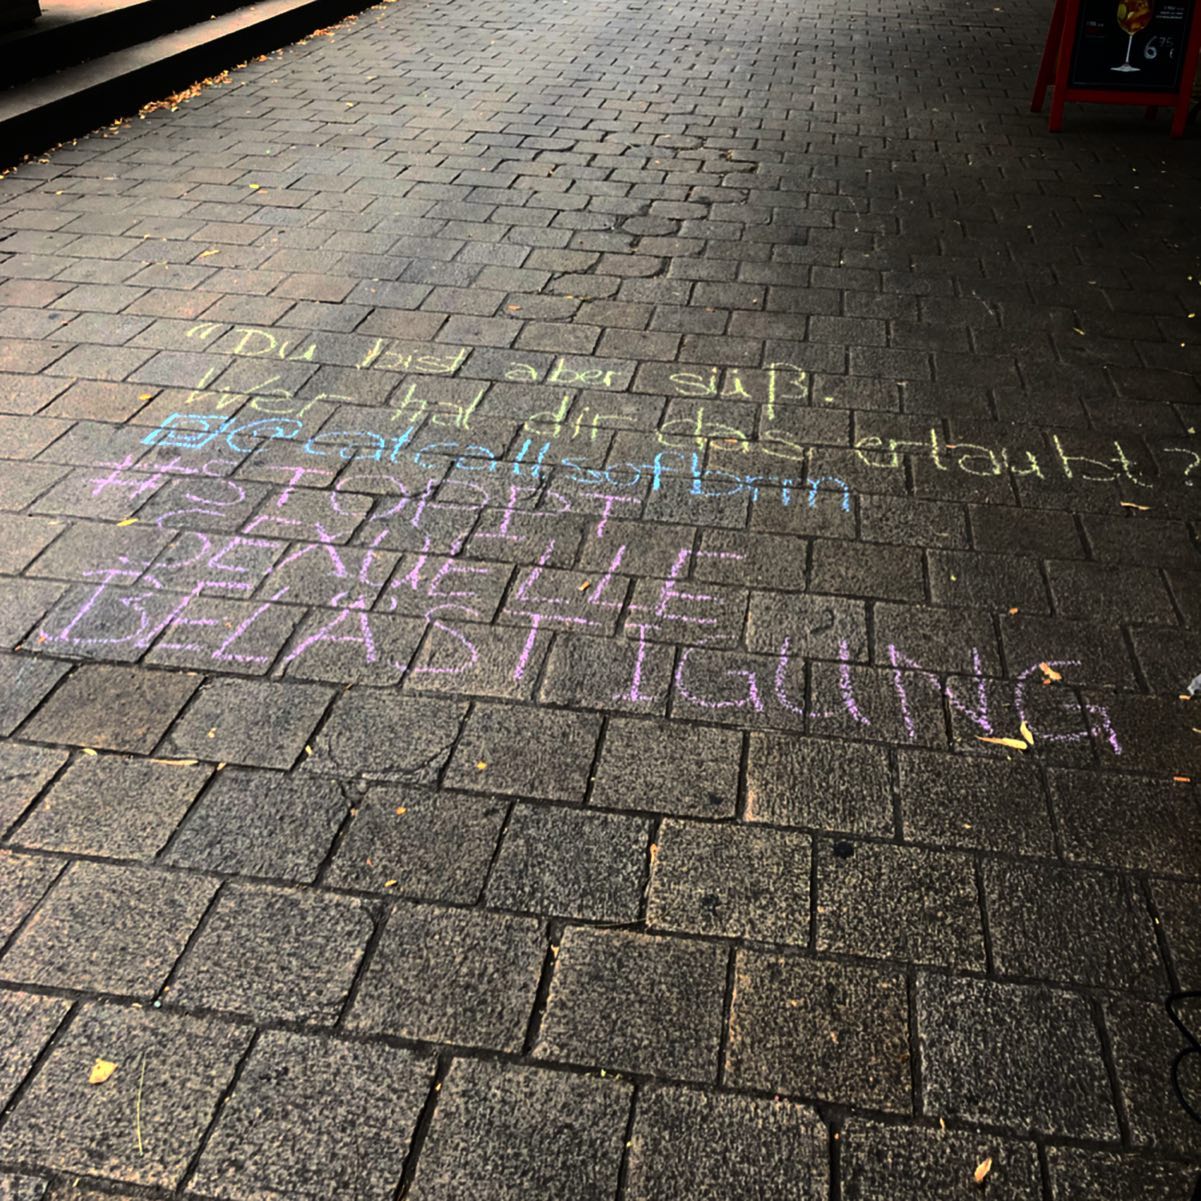 "Du bist aber süß.
Wer hat dir das erlaubt?
@catcallsofbrm
#STOPPT
SEXUELLE
BELÄSTIGUNG